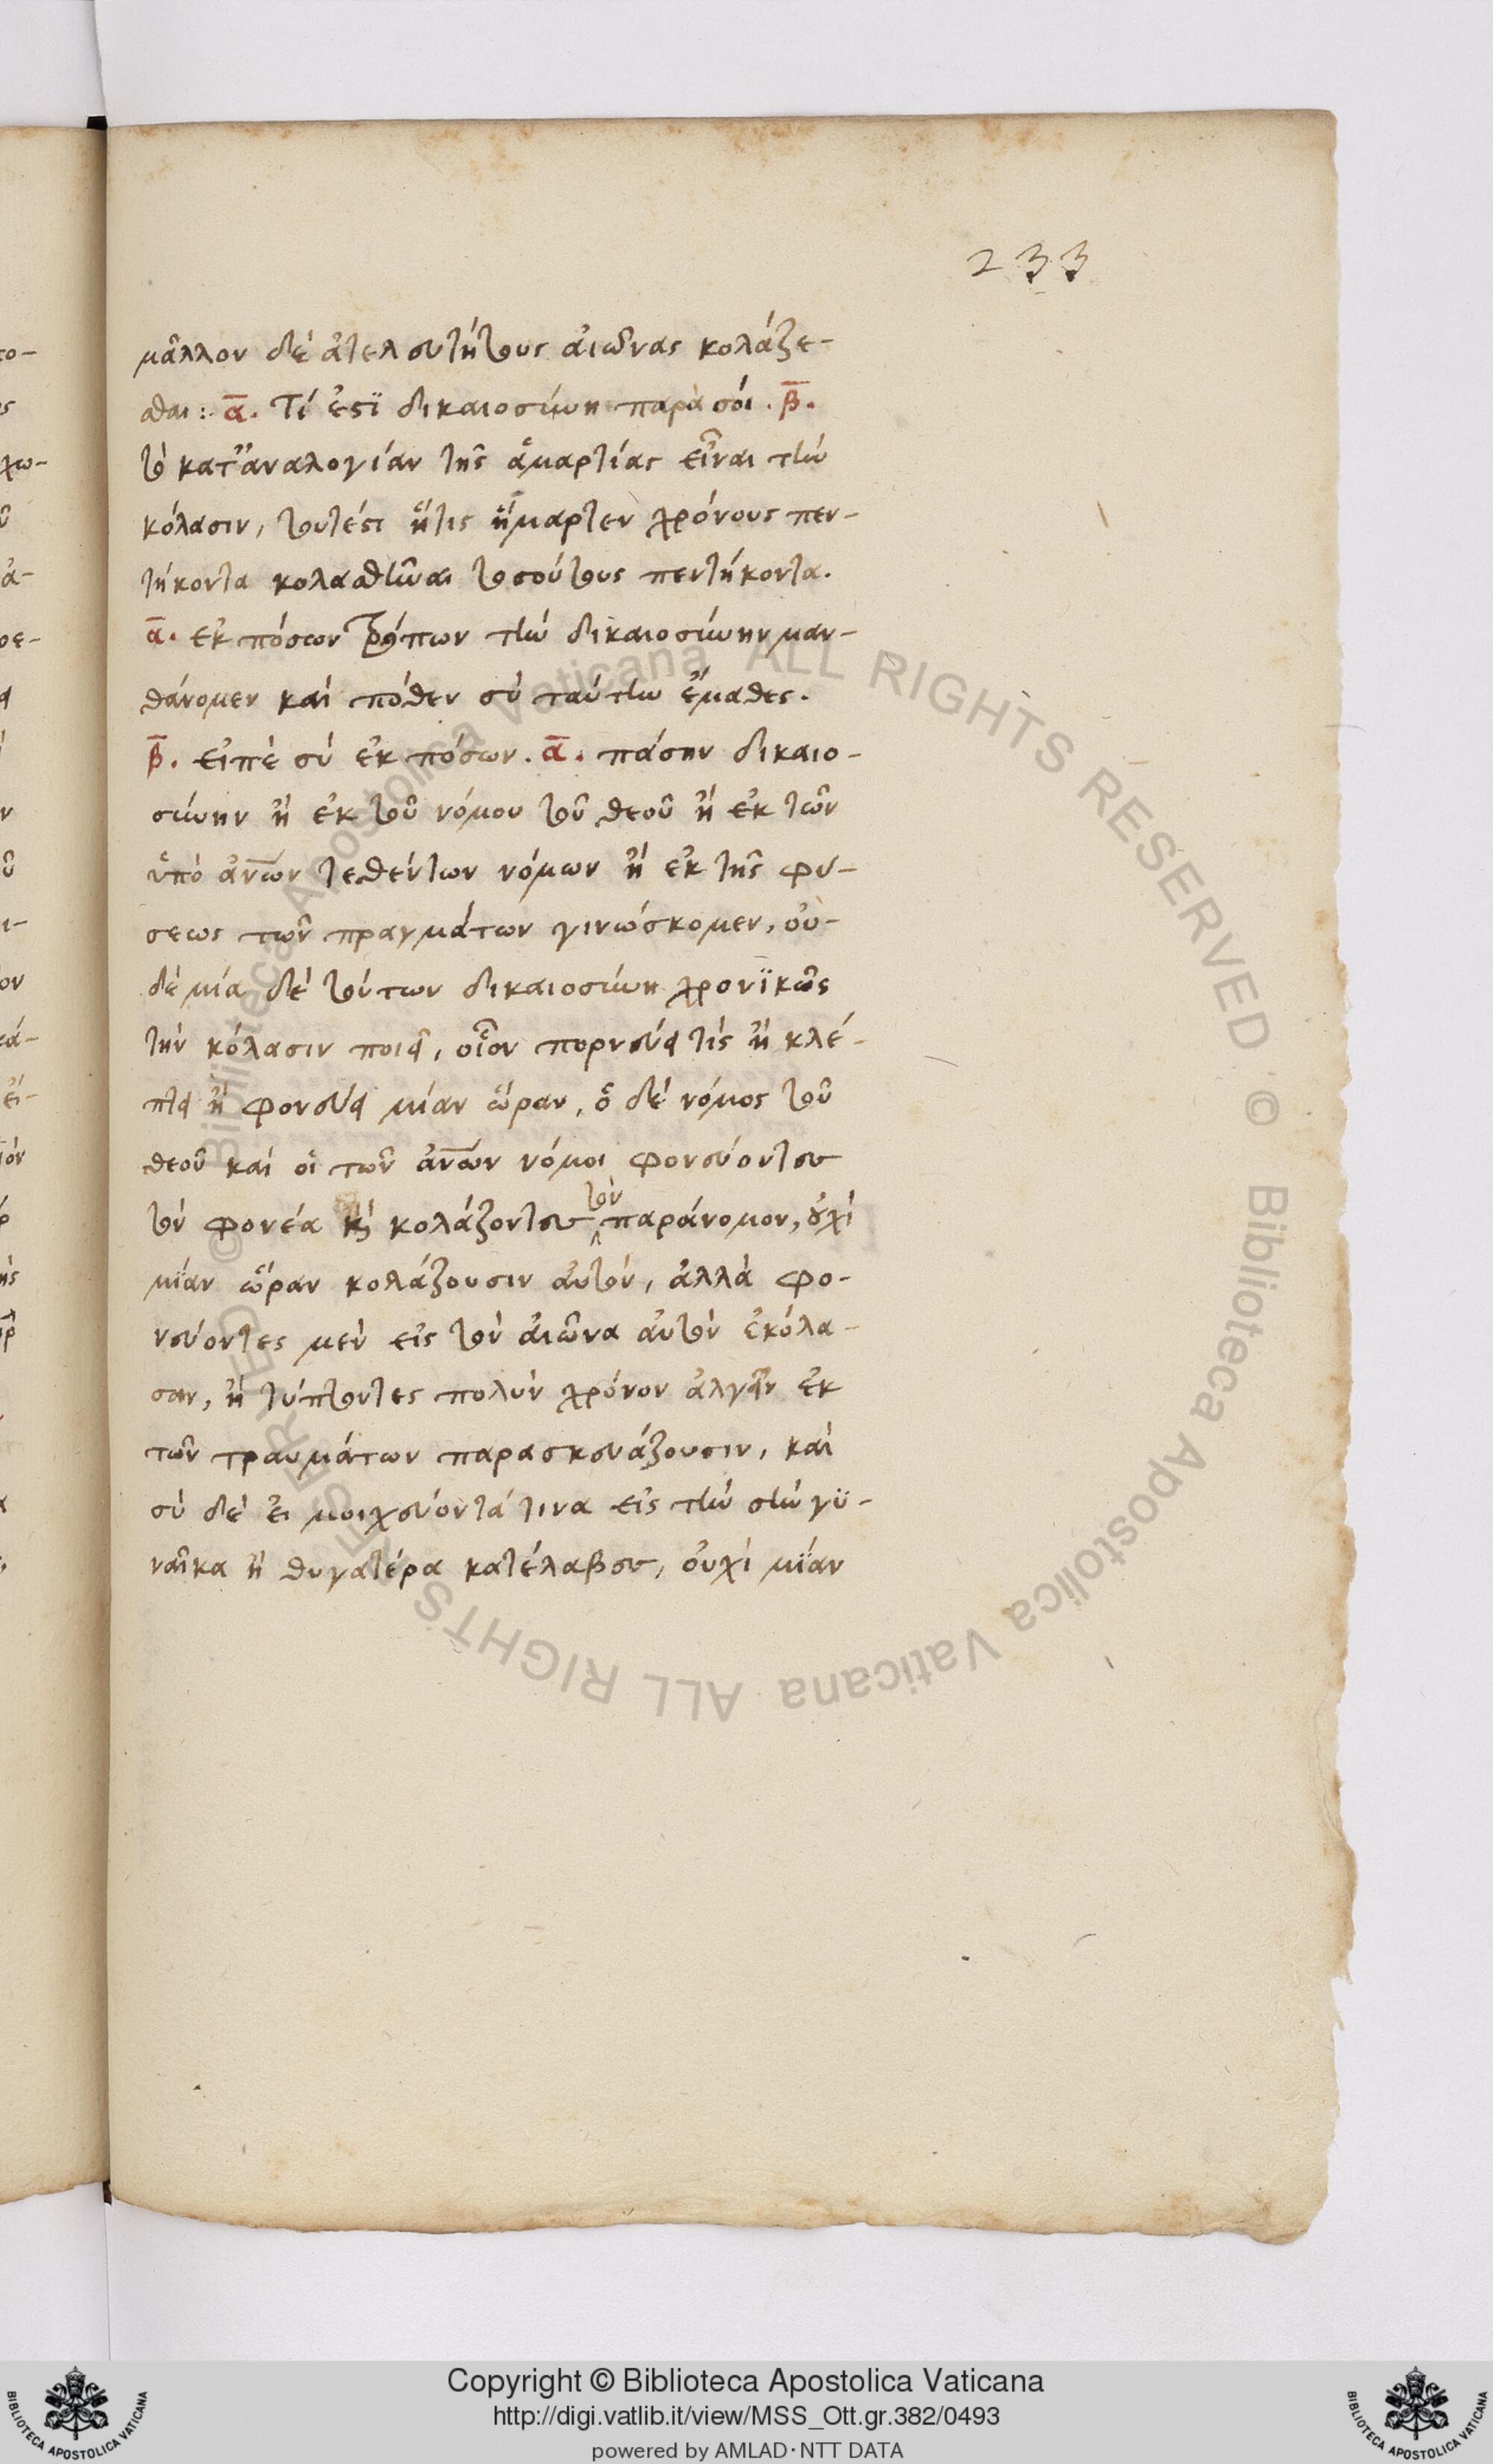 233
μᾶλλον δὲ ἀτελευτήτους αἰῶνας κολάζε-
σθαι: α̅. Τί ἐστϊ δικαιοσύνη παρὰ σόι. β̅.
τὸ κατ' ἀναλογίαν τῆς ἁμαρτίας εἶναι τὴν
κόλασιν, τουτέστι ἥτις ἥμαρτεν χρόνους πεν-
τήκοντα κολασθῆναι τοσούτους πεντήκοντα.
α̅. ἐκ πόσων τρόπων τὴν δικαιοσύνην μαν-
θάνομεν καὶ πόθεν σὺ ταύτην ἔμαθες.
β̅. εἰπὲ σύ ἐκ πόσων. α̅. πάσην δικαιο-
σύνην ἢ ἐκ τοῦ νόμου τοῦ θεοῦ ἢ ἐκ τῶν
ὑπὸ ἀν̅ων τεθέντων νόμων ἢ ἐκ τῆς φύ-
σεως τῶν πραγμάτων γινώσκομεν, οὐ-
δὲ μία δὲ τούτων δικαιοσύνη χρονϊκῶς
τὴν κόλασιν ποιεῖ, οἷον πορνεύει τὶς ἢ κλέ-
πτει ἢ φονεύει μίαν ὥραν, ὁ δὲ νόμος τοῦ
θεοῦ καὶ οἱ τῶν ἀν̅ων νόμοι φονεύοντες
τὸν φονέα κ̀ κολάζοντες τὸν παράνομον, οὐχὶ
μϊαν ὥραν κολάζουσιν αὐτόν, ἀλλὰ φο-
νεύοντες μὲν εἰς τὸν αἰῶνα αὐτὸν ἐκόλα-
σαν, ἢ τύπτοντες πολὺν χρόνον ἀλγεῖν ἐκ
τῶν τραυμάτων παρασκευάζουσιν, καὶ
σὺ δὲ εἰ μοιχεύοντά τινα εἰς τὴν σὴν γϋ-
ναῖκα ἢ θυγατέρα κατέλαβες, οὐχὶ μϊαν
Copyright © Biblioteca Apostolica Vaticana
http://digi.vatlib.it/view/MSS_Ott.gr.382/0493
powered by AMLAD·NTT DATA
© Biblioteca Apostolica Vaticana ALL RIGHTS RESERVED © Biblioteca Apostolica Vaticana ALL RIGHTS RESERVED
BIBLIOTECA APOSTOLICA VATICANA
BIBLIOTECA APOSTOLICA VATICANA